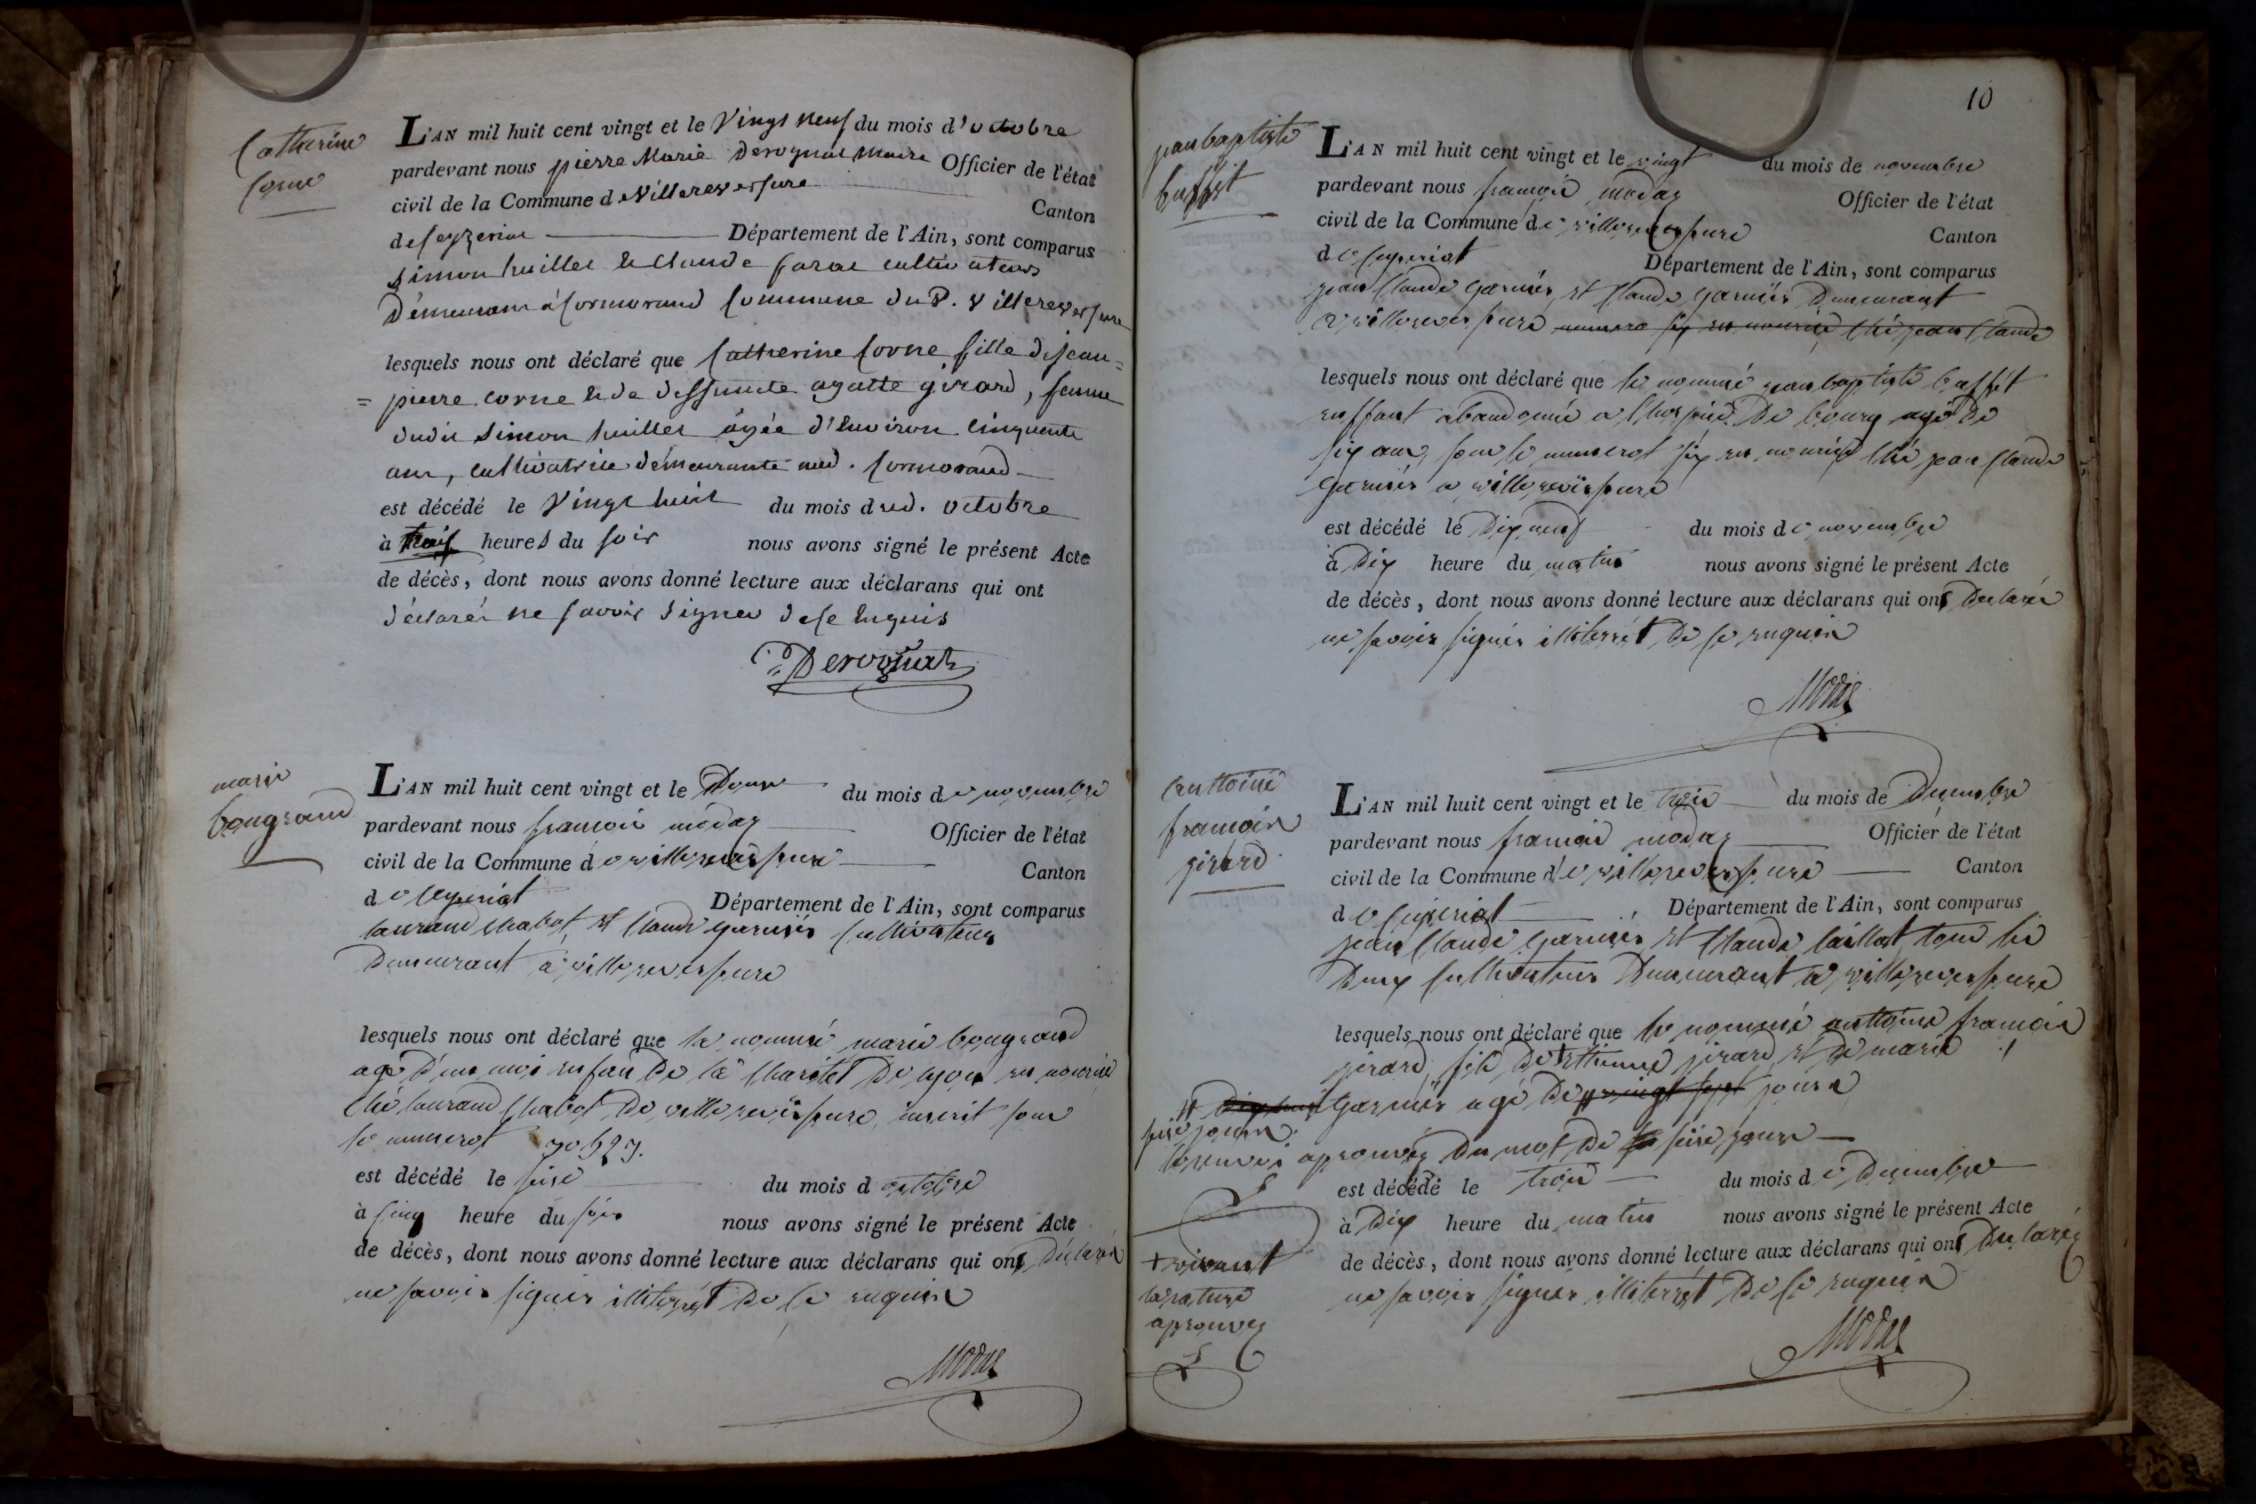 Catherine
Corne
L'AN mil huit cent vingt et le Vingt neuf du mois d'octobre
pardevant nous pierre Marie Derognat Maire Officier de l'état
civil de la Commune de Villereversure Canton
de Ceyzeriat Département de l'Ain, sont comparus
Simon huillet & Claude cultivateurs
Démeurans à Cormorand Commune du d. Villereversure
lesquels nous ont déclaré que Catherine Corne fille de jean=
=pierre Corne & de deffuncte agatte girard, femme
dudit Simon huillet âgée d'Environ Cinquante
ans, cultivatrice démeurante aud. Cormorand
est décédé le Vingt huit du mois dud. octobre
à trois heures du soir nous avons signé le présent Acte
de décès, dont nous avons donné lecture aux déclarans qui ont
déclarés ne savoir signer de ce Enquis
Derognat
marie
bougrand
L'AN mil huit cent vingt et le Douse du mois de novembre
pardevant nous francois moday Officier de l'état
civil de la Commune de villereversure Canton
de Ceyseriat Département de l'Ain, sont comparus
laurand Chabot et Claude garnier Cultivateurs
Demeurant a villereversure
lesquels nous ont déclaré que la nommé marie bougrand
agé d'un moi enfan de la Charitet De lyon en nourise
Ché laurand Chabot De villereversure, inscrit sous
le numerot
est décédé le seise du mois d octobre
à sinq heure du soir nous avons signé le présent Acte
de décès, dont nous avons donné lecture aux déclarans qui ont déclarés
ne savoir signer illiterét De Ce enquis
Moday
10
jean baptiste
buffet
L'AN mil huit cent vingt et le vingt du mois de novembre
pardevant nous francois moday Officier de l'état
civil de la Commune de villereversure Canton
de Ceyseriat Département de l'Ain, sont comparus
jean Claude garnier et Claude garnier Demeurant
a villereversure numero six en nourise ché jean Claude
lesquels nous ont déclaré que le nommé jean baptiste buffet
enffant abandonné a l'hospice De bourg agé De
six ans sous le numerot six en nourise Ché jean Claude
garnier a villereversure
est décédé le Dix neuf du mois de novembre
à Dix heure du matin nous avons signé le présent Acte
de décès, dont nous avons donné lecture aux déclarans qui ont Declarés
ne savoir signer illiterét De Ce enquis
Moday
anttoine
francois
girard
L'AN mil huit cent vingt et le trois du mois de Decembre
pardevant nous francois moday Officier de l'état
civil de la Commune de villereversure Canton
de Ceyseriat Département de l'Ain, sont comparus
jean Claude garnier et Claude Caillat tous les
Deux Cultivateurs Demeurant a villereversure
lesquels nous ont déclaré que le nommé anttoine francois
girard fils De + ettienne girard et De marie
garnier agé De vingt sept jours
seise jours
le renvoi aprouvez Du mot De seise jours
est décédé le trois du mois de Decembre
à Dix heure du matin nous avons signé le présent Acte
de décès, dont nous avons donné lecture aux déclarans qui ont Declarez
ne savoir signer illiterét De Ce enquis
+ vivant
la rature
aprouvez
Moday